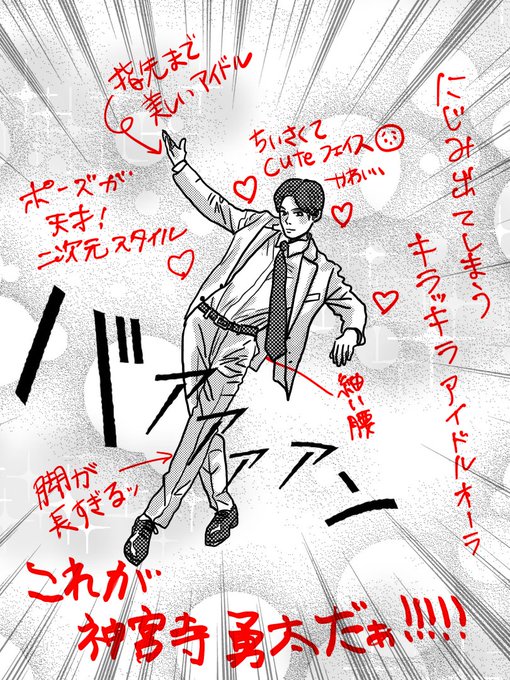 にじみ出てしまう
キラッキラアイドルオーラ
指先まで
美しいアイドル
ちいさくて
cuteフェイス
かわいい
ポーズが
天才!
二次元スタイル
バァァァァァン
細い腰
脚が
長すぎるッ
これが
神宮寺勇太だぁ!!!!!